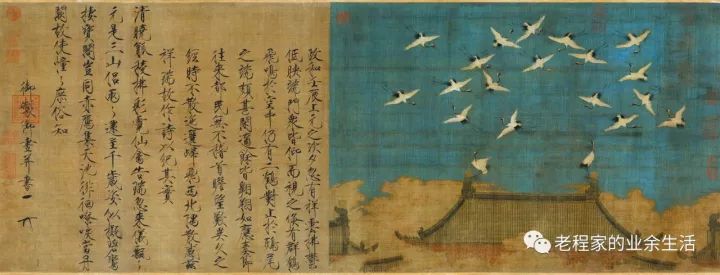 政和壬辰上元之次夕忽有祥雲拂鬱
低映端門衆皆仰而視之倏有群鶴
飛鳴於空中仍有二鶴對止於鴟尾
之端頗甚閒適餘皆翱翔如應奏節
往來都民無不稽首瞻望歎異久之
經時不散迤邐歸飛西北隅散感茲
祥瑞故作詩以紀其實
清曉觚稜拂彩霓仙禽告瑞忽來儀飄々
元是三山侶兩々還呈千歲姿似擬碧鸞
棲寶閣豈同赤雁集天池徘徊嘹唳當丹
闕故使憧々庶俗知
御製御畫并書
老程家的业余生活